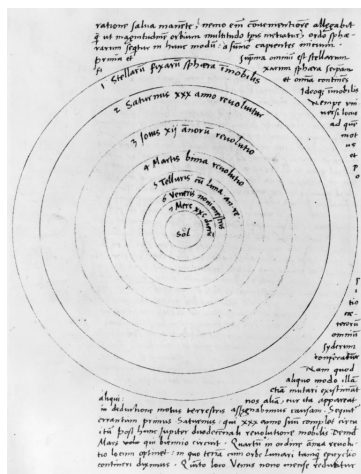 ratione salua manēte, nemo em̄ conuenientiorē allegabit
q̄ ut magnitudinē orbium multitudo tp̄is metiatur, ordo sphæ-
rarum sequitur in hunc modū: a summo capientes initium.
prima et suprema omniū est stellarum
fixarum sphæra seipsam
et omnia continēs
Ideoq; immobilis
Nempe vni
uersi locus
ad quē
mot
us
et
1 Stellarū fixarū sphæra īmobilis
2 Saturnus xxx anno reuoluitur
3 Iouis xij annorū reuolutio
4 Martis bima reuolutio
5 Telluris cū Luna an. re.
6 Veneris nonimestris
7 Merc
Sol
tio
cæ-
terorū
omniū
syderum
conferatur
Nam quod
aliquo modo illā
etiā mutari existimāt
aliqui: nos aliā, cur ita appareat
in deductione motus terrestris assignabimus causam. Sequit
errantium primus Saturnus: qui xxx anno suū complet circu
itū. post hunc Iupiter duodecennali reuolutione mobilis. Demd
Mars volo qui biennio circuit. Quartū in ordine annua reuolu
tio locum optinet: in quo terrā cum orbe Lunari tanq̄ epicyclo
contineri diximus. Quīto loco Venus nono mense reducitur